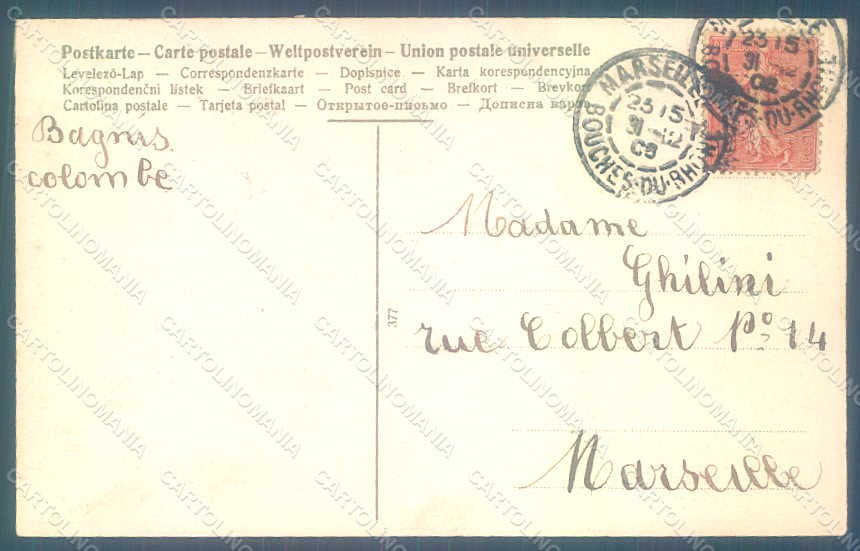 Postkarte — Carte postale — Weltpostverein — Union postale universelle
Levelező-Lap — Correspondenzkarte — Dopisnice — Karta korespondencyjna
Korespondenční lístek — Briefkaart — Post card — Brefkort — Brevkort
Cartolina postale — Tarjeta postal — Открытое письмо — Дописна карта
Bagnis
colombe
MARSEILLE
23 15
31 - 12
08
BOUCHES-DU-RHONE
23 15
31 12
08
DU-RHONE
Madame
Ghilini
rue Colbert No 14
Marseille
377
CARTOLINOMANIA